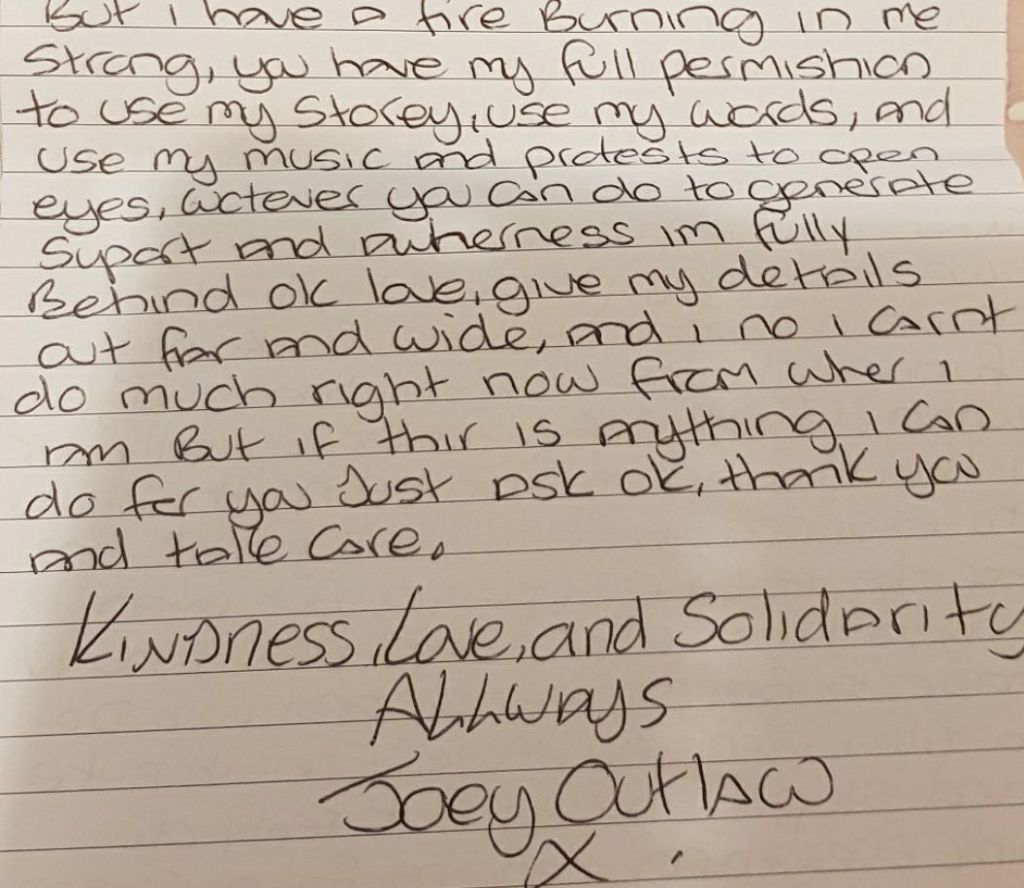 But i have a fire Burning in me
Strong, you have my full permishion
to use my Storey, use my words, and
use my music and protests to open
eyes, wotever you can do to generate
Suport and awherness im fully
Behind ok love, give my details
out far and wide, and i no i carnt
do much right now from wher i
am But if thir is anything i can
do for you Just ask ok, thank you
and take care.
Kindness, Love, and Solidarity
Allways
Joey Outlaw
X.